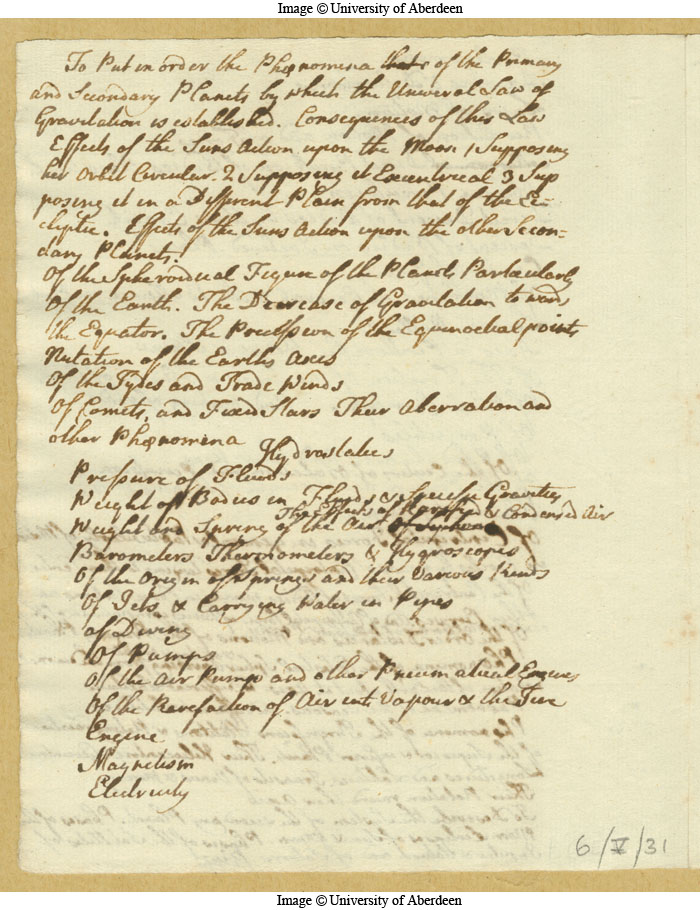 Image © University of Aberdeen
To Put in order the Phœnomena that of the Primary
and Secondary Planets by which the Univeral Law of
Gravitation is established. Consequences of this Law
Effects of the Suns Action upon the Moon 1 Supposing
her Orbit Circular. 2 Supposing it Excentrical 3 Sup
posing it in a Different Plain from that of the Ec-
cliptic. Effects of the Suns Action upon the other Secon=
dary Planets.
Of the Spheroidical Figure of the Planets Particularly
Of the Earth. The Decrease of Gravitation to wards
the Equator. The Precession of the Equinoctial points
Nutation of the Earths Axes
Of the Tydes and Trade Winds
Of Comets, and Fixed Stars Their Aberration and
other Phœnomena
Hydrostaticks
Pressure of Fluids
Weight of Bodies in Fluids & Specifick Gravities
The Effects of Rarified & Condensed Air
Weight and Spring of the Air.
Barometers Thermometers & Hygroscopes
Of the Origin of Springs and their Various Kinds
Of Jets, & Carrying Water in Pipes
of Diving
Of Pumps
Of the Air Pump and other Pneumatical Engines
Of the Rarefaction of Air into Vapour & the Fire
Engine
Magnetism
Electricity
6/V/31
Image © University of Aberdeen